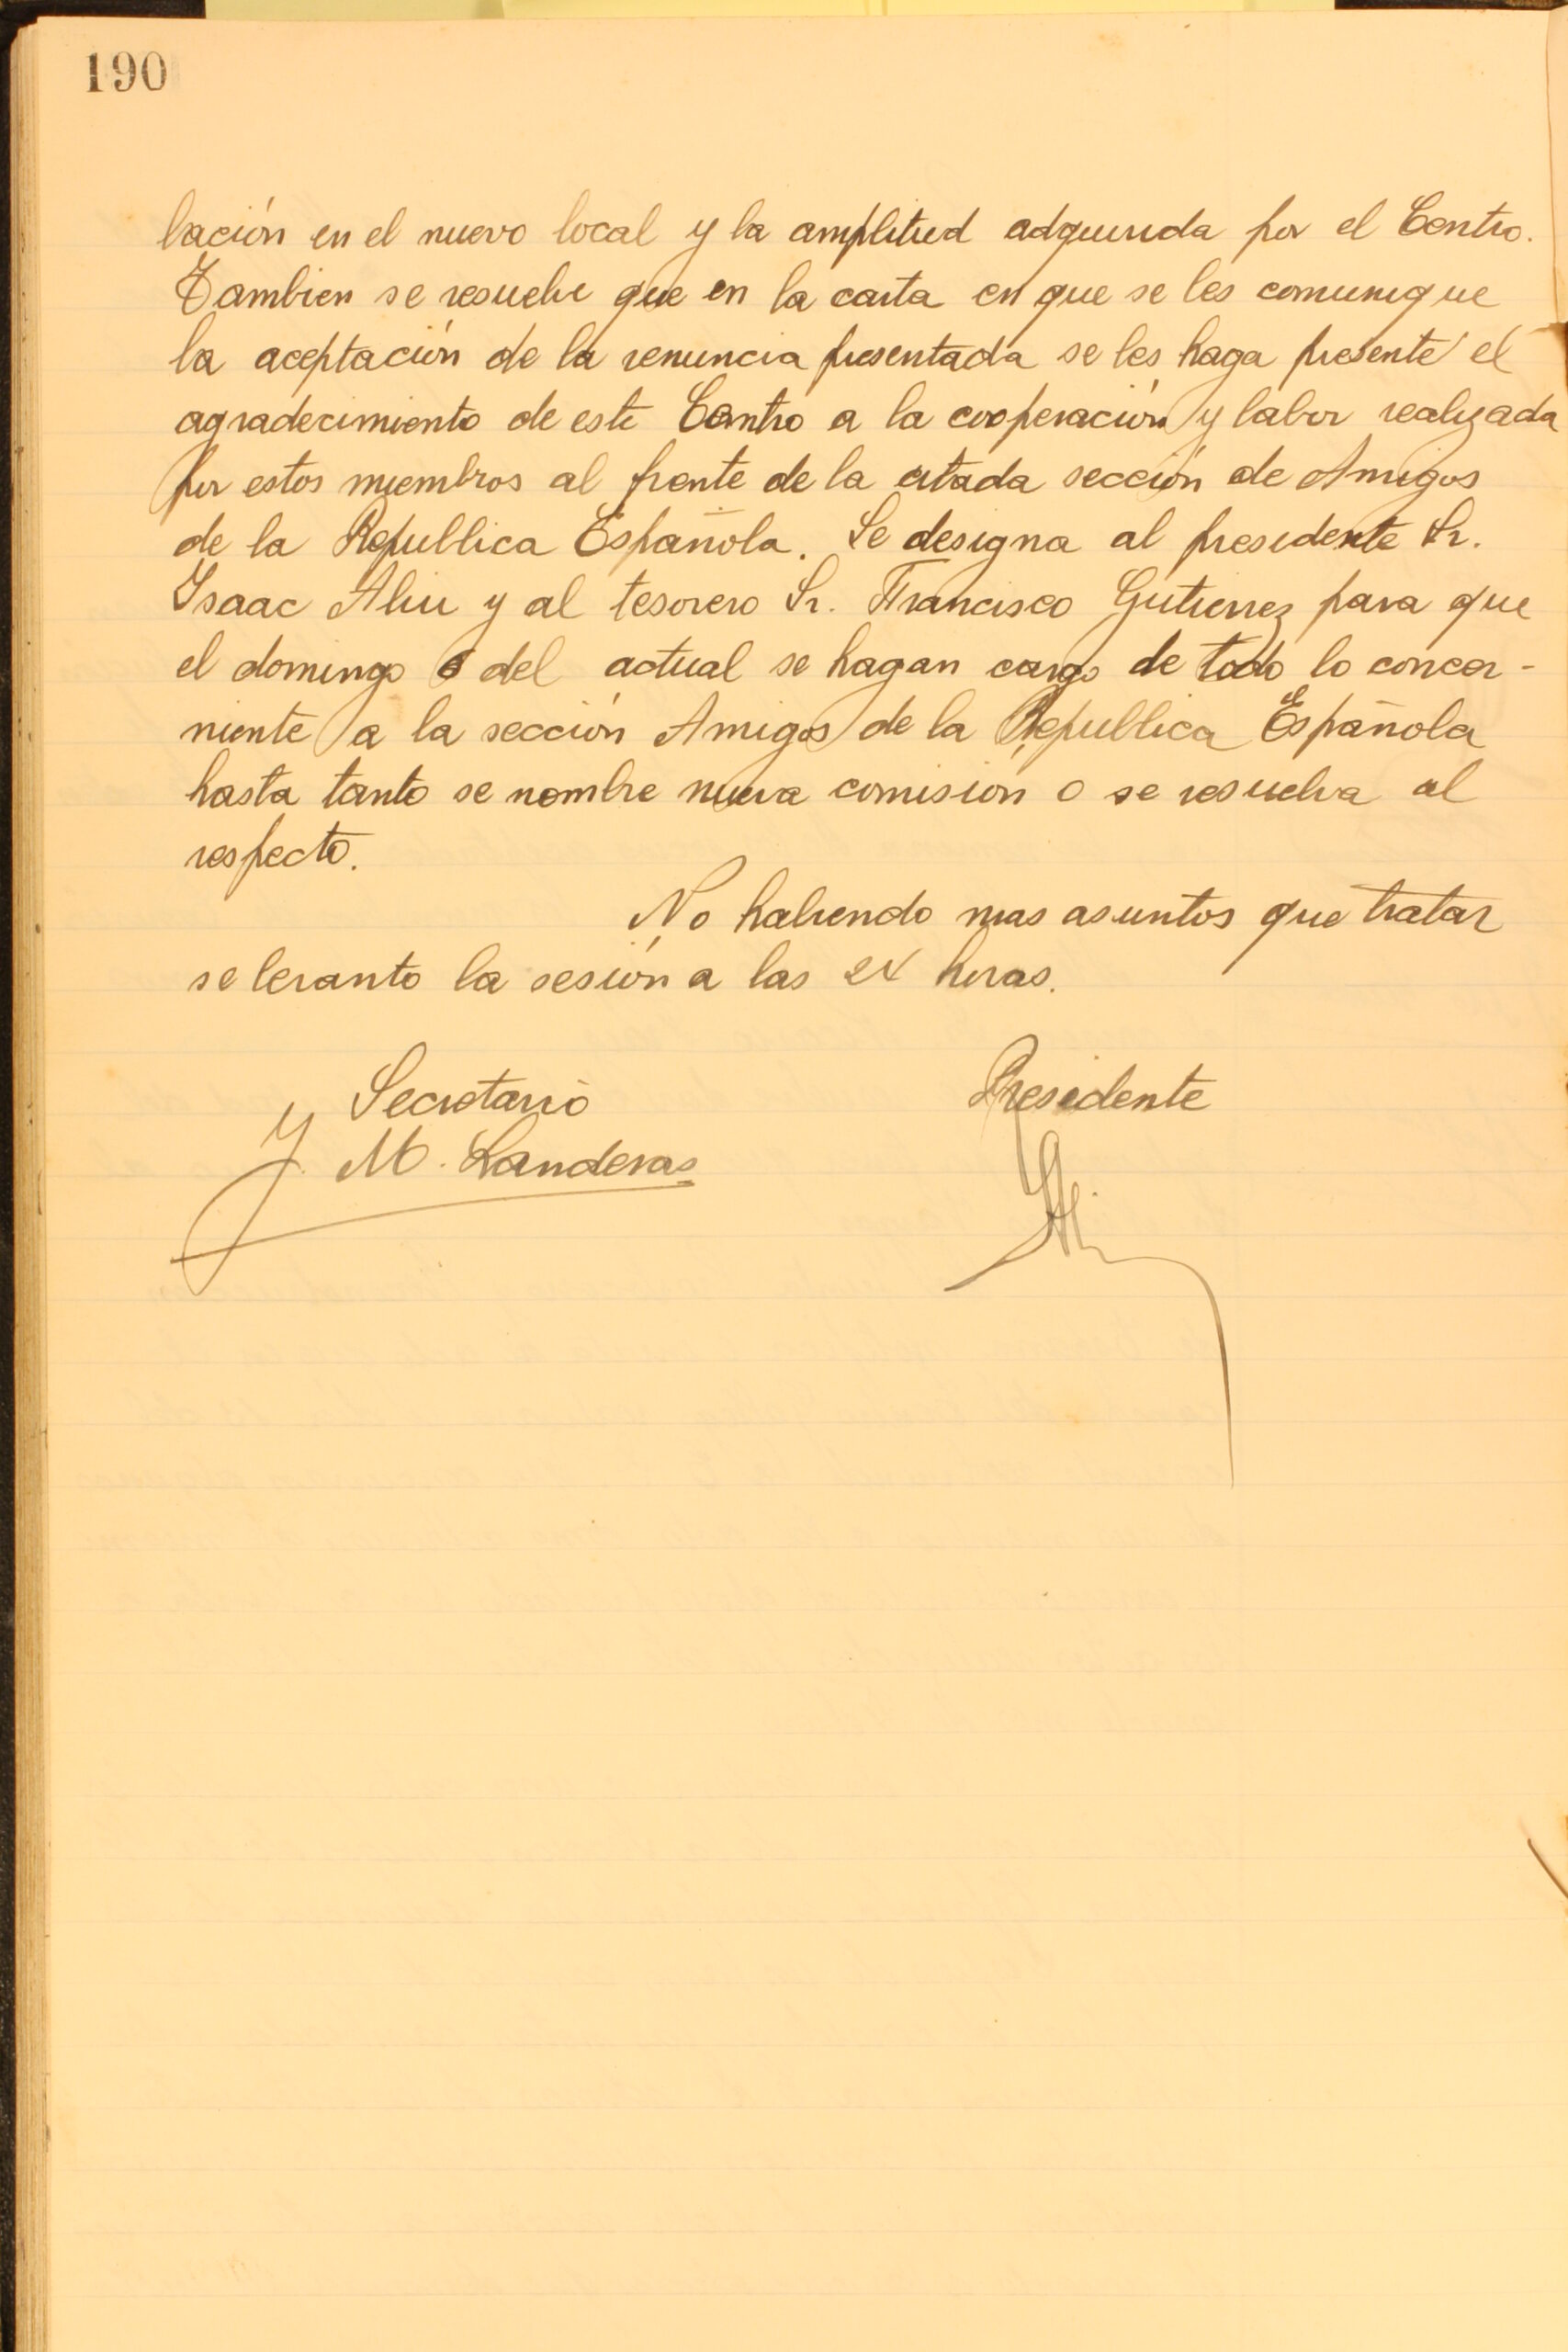 190
lación en el nuevo local y la amplitud adquirida por el Centro.
Tambien se resuelve que en la carta en que se les comunique
la aceptación de la renuncia presentada se les haga presente el
agradecimiento de este Centro a la cooperación y labor realizada
por estos miembros al frente de la citada sección de Amigos
de la Republica Española. Se designa al presidente Sr.
Isaac y al tesorero Sr. Francisco Gutierrez para que
el domingo 6 del actual se hagan cargo de todo lo concer-
niente a la sección Amigos de la Republica Española
hasta tanto se nombre nueva comisión o se resuelva al
respecto.
No habiendo mas asuntos que tratar
se levanto la sesión a las 24 horas.
Secretario
Presidente
M. Landeras